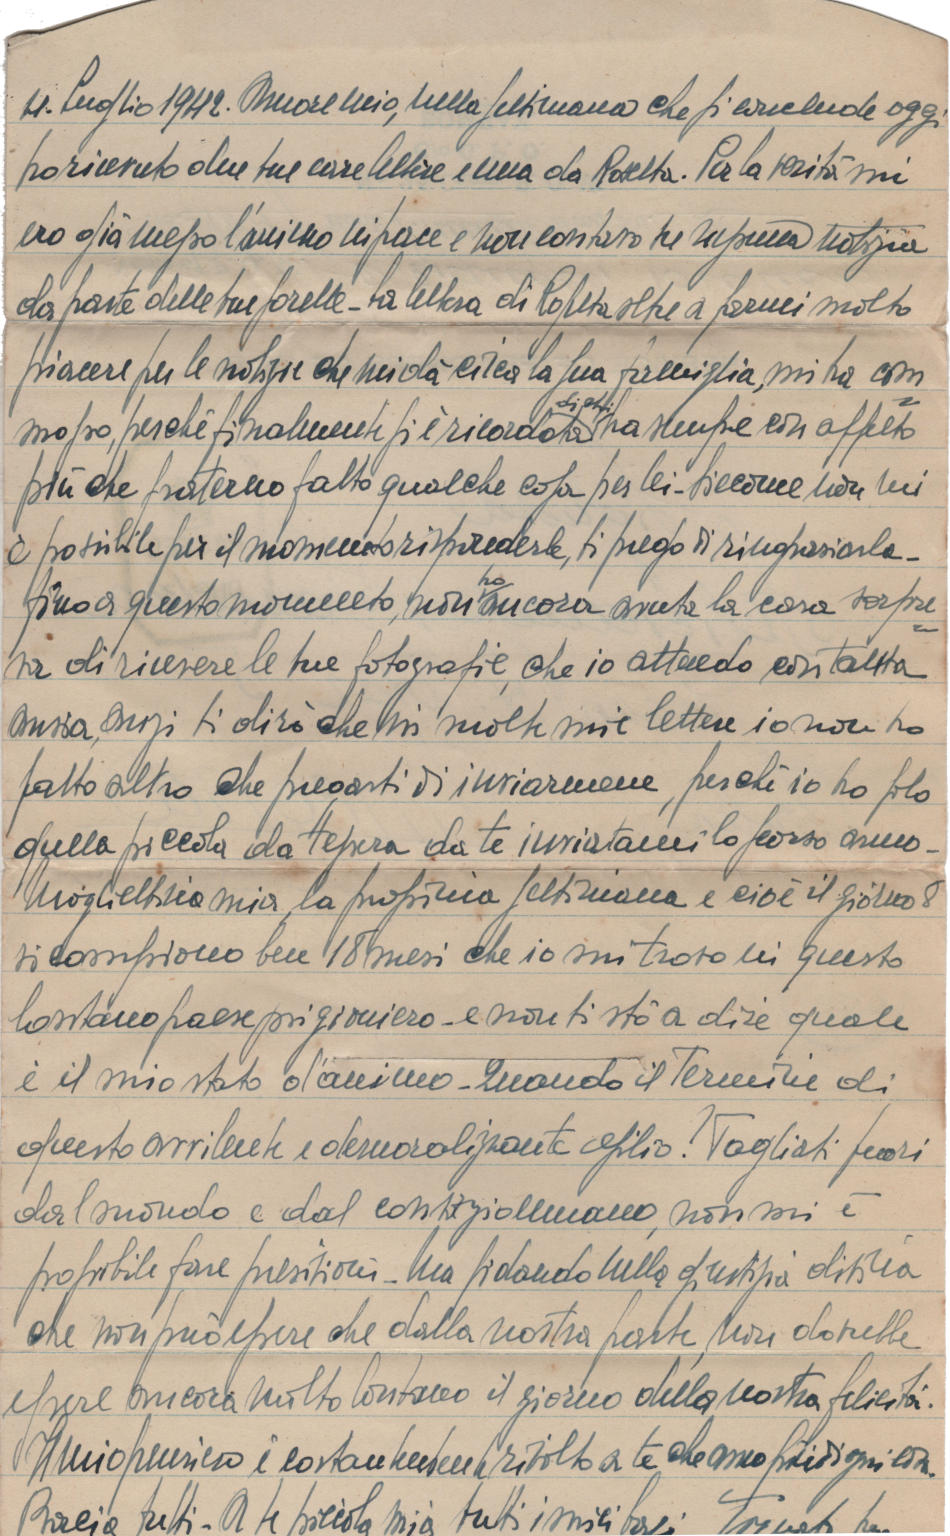 4. Luglio 1942. Amore mio, nella settimana che si conclude oggi
ho ricevuto due tue care lettere e una da Rosetta. Per la verità mi
ero già messo l'animo in pace e non contavo su nessuna notizia
da parte delle tue sorelle - La lettera di Rosetta oltre a farmi molto
piacere per le notizie che mi dà circa la sua famiglia, mi ha com
mosso, perchè finalmente si è ricordata di chi ha sempre con affetto
più che fraterno fatto qualche cosa per lei - Siccome non mi
è possibile per il momento risponderle, ti prego di ringraziarla -
Fino a questo momento, non ho ancora avuta la cara sorpre
sa di ricevere le tue fotografie, che io attendo con tanta
ansia, anzi ti dirò che in molte mie lettere io non ho
fatto altro che pregarti di inviarmene, perchè io ho solo
quella piccola da tessera da te inviatami lo scorso anno -
Mogliettina mia, la prossima settimana e cioè il giorno 8
si compiono ben 18 mesi che io mi trovo in questo
lontano paese prigioniero - e non ti stò a dire quale
è il mio stato d'animo - Quando il termine di
questo avvilente e demoralizzante esilio? Tagliati fuori
dal mondo e dal consorzio umano, non mi è
possibile fare previsioni - Ma fidando nella giustizia divina
che non può essere che dalla nostra parte, non dovrebbe
essere ancora molto lontano il giorno della nostra felicità.
Il mio pensiero è costantemente rivolto a te che amo più di ogni cosa.
Bacia tutti - A te piccola mia tutti i miei baci